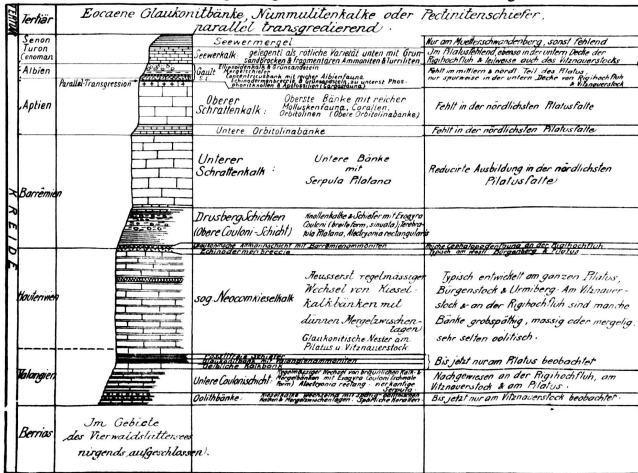 Tertiär
Eocaene Glaukonitbänke, Nummulitenkalke oder Pectinitenschiefer,
parallel transgredierend.
KREIDE
Senon
Turon
Cenoman
Seewermergel
Nur am Muetterschwandenberg, sonst fehlend
Seewerkalk
gelegentl. als rötliche Varietät unten mit Grün-
Sandbrocken & fragmentären Ammoniten & Turriliten.
Im Pilatus fehlend, ebenso in der untern Decke der
Rigihochfluh & teilweise auch des Vitznauerstocks
Albien
Parallel-Transgression
Gault
Ellipsoidenkalk & Grünsandstein
Mergelschiefer
Concentricusbank mit reicher Albienfauna.
Echinodermenbreccie & Grünsandstein, zu unterst Phos-
phoritknollen & Aptfossilien (Gargasfauna)
Fehlt im mittlern & nördl. Teil des Pilatus,
nur spurweise in der untern Decke von Rigihochfluh
& Vitznauerstock
Aptien
Oberer
Schrattenkalk:
Oberste Bänke mit reicher
Molluskenfauna, Corallen,
Orbitolinen (Obere Orbitolinabank)
Fehlt in der nördlichsten Pilatusfalte
Untere Orbitolinabank
Fehlt in der nördlichsten Pilatusfalte
Barrêmien
Unterer
Schrattenkalk:
Untere Bänke
mit
Serpula Pilatana
Reducirte Ausbildung in der nördlichsten
Pilatusfalte
Drusberg Schichten
(Obere Couloni-Schicht)
Knollenkalke & Schiefer mit Exogyra
Couloni (breite form, sinuata), Terebra-
tula Pilatana, Alectryonia rectangularis
mit Barrêmienammoniten
Reiche Cephalopodenfauna an der Rigihochfluh.
Echinodermenbreccie
Typisch am westl. Bürgenberg & Pilatus
Hauterivien
sog. Neocomkieselkalk
Aeusserst regelmässiger
Wechsel von Kiesel-
kalkbänken mit
dünnen Mergelzwischen-
lagen
Glaukonitische Nester am
Pilatus u. Vitznauerstock
Typisch entwickelt am ganzen Pilatus,
Bürgenstock & Urmiberg. Am Vitznauer-
stock & an der Rigihochfluh sind manche
Bänke grobspäthig, massig oder mergelig,
sehr selten oolitisch.
Valangien
Fossilfreie Schiefer
Glaukonitbank mit Valangienammoniten
Gelbliche Kalkbank
Bis jetzt nur am Pilatus beobachtet
Untere Coulonischicht:
Regelmässiger Wechsel von bräunlichen Kalk- &
Mergelbänken mit Exogyra Couloni (schmale
Form) Alectryonia rectang. nerkantige
Serpula.
Nachgewiesen an der Rigihochfluh, am
Vitznauerstock & am Pilatus.
Oolithbänke:
Kieselkalke wechselnd mit
Kalken & Mergelzwischenlagen. Spärliche Korallen
Bis jetzt nur am Vitznauerstock beobachtet.
Berrias
Im Gebiete
des Vierwaldstättersees
nirgends aufgeschlossen).